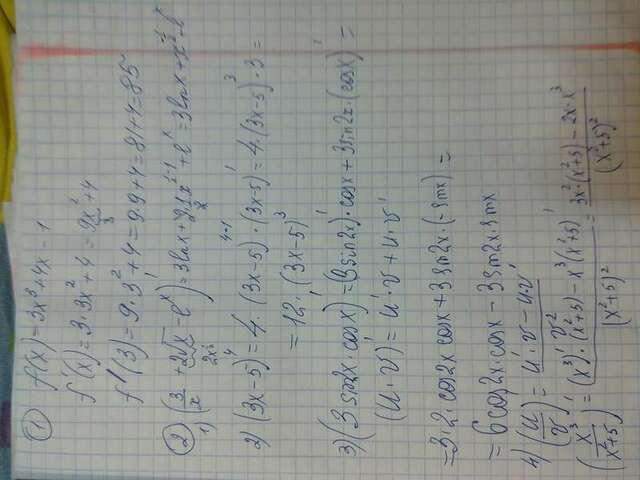 ① f(x) = 3x³ + 4x - 1
f'(x) = 3·3x² + 4 = 9x² + 4
3
f'(3) = 9·3² + 4 = 9·9 + 4 = 81 + 4 = 85
② 1) (3/x + 2√x - eˣ)' = 3lnx + 2·1/2 x^(1/2-1) + eˣ = 3lnx + x^(-1/2) - eˣ
2x^(1/2)
2) (3x-5)⁴ = 4·(3x-5)^(4-1)·(3x-5)' = 4·(3x-5)³·3 =
= 12·(3x-5)³
3) (3sin2x·cosx)' = (3sin2x)'·cosx + 3sin2x·(cosx)' =
(u·v)' = u'·v + u·v'
= 3·2·cos2x cosx + 3sin2x·(-sinx) =
= 6cos2x·cosx - 3sin2x·sinx
4) (u/v)' = (u'·v - u·v')/v²
(x³/(x²+5))' = ((x³)'·(x²+5) - x³(x²+5)')/(x²+5)² = (3x²·(x²+5) - 2x·x³)/(x²+5)²